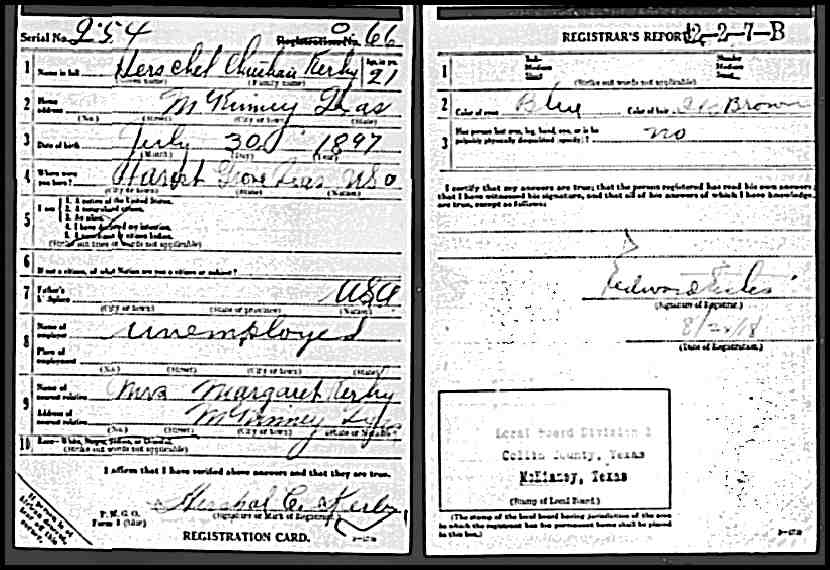 Serial No. 254 Registration No. 66
1 Name in full Herschel Kerby Age in yrs. 21
(Given name) (Family name)
2 Home address McKinney Texas
(No.) (Street) (City or town) (State)
3 Date of birth July 30 1897
(Month) (Day) (Year)
4 Where were you born? Grove Texas USA
(City or town) (State) (Nation)
5 I am
1. A native of the United States.
2. A naturalized citizen.
3. An alien.
4. I have declared my intention.
5.
(Strike out lines or words not applicable)
6 If not a citizen, of what Nation are you a citizen or subject?
7 Father's birthplace USA
(City or town) (State or province) (Nation)
8 Name of employer unemployed
Place of employment
(No.) (Street) (City or town) (State)
9 Name of nearest relative Mrs Margaret Kerby
Address of nearest relative McKinney Texas
(No.) (Street) (City or town) (State or Nation)
10 Race—White, Negro, Indian, or Oriental.
(Strike out words not applicable)
I affirm that I have verified above answers and that they are true.
Hershal C. Kerby
(Signature or Mark of Registrant.)
P. M. G. O.
Form 1
REGISTRATION CARD.
REGISTRAR'S REPORT 42-2-7-B
1 Tall Slender
Medium Medium
Short Stout
(Strike out words not applicable)
2 Color of eyes Blue Color of hair Brown
3 Has person lost arm, leg, hand, eye, or is he
palpably physically disqualified (specify)? no
I certify that my answers are true; that the person registered has read his own answers;
that I have witnessed his signature, and that all of his answers of which I have knowledge
are true, except as follows:
Edward
(Signature of Registrar.)
(Date of Registration.)
Local Board Division 2
Collin County, Texas
McKinney, Texas
(Stamp of Local Board.)
(The stamp of the local board having jurisdiction of the area
in which the registrant has his permanent home shall be placed
in this box.)